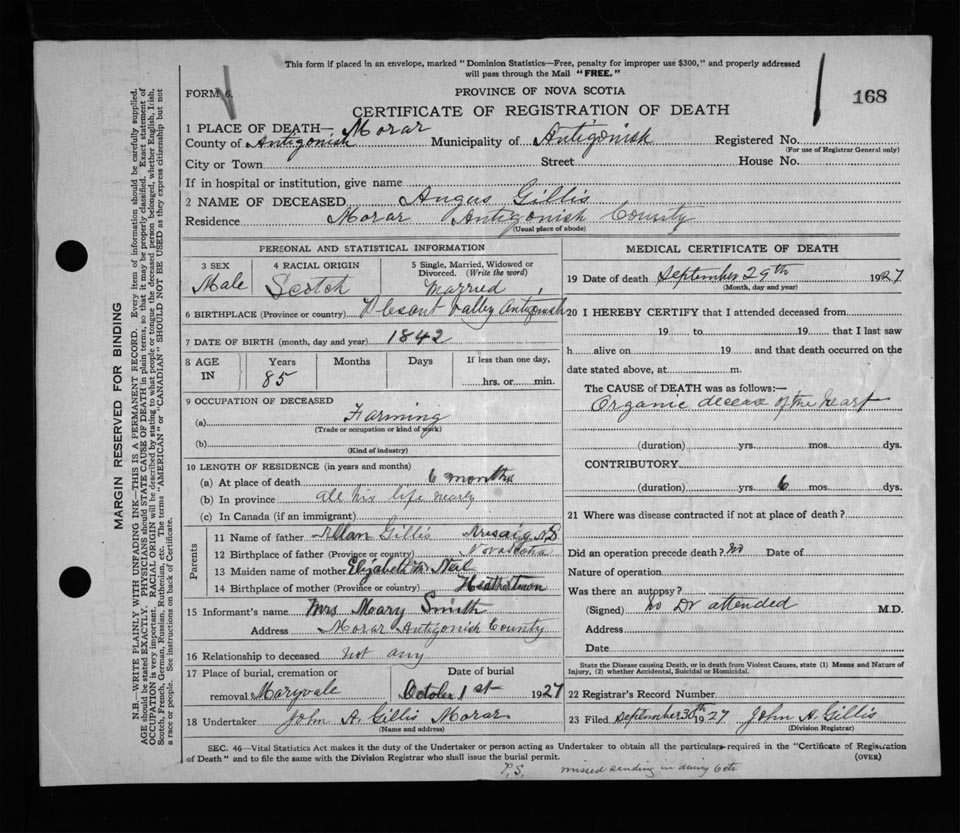 This form if placed in an envelope, marked "Dominion Statistics—Free, penalty for improper use $300," and properly addressed
will pass through the Mail "FREE."
FORM 6.
PROVINCE OF NOVA SCOTIA
168
CERTIFICATE OF REGISTRATION OF DEATH
1 PLACE OF DEATH— Morar
County of Antigonish Municipality of Antigonish Registered No.
(For use of Registrar General only)
City or Town Street House No.
If in hospital or institution, give name
2 NAME OF DECEASED Angus Gillis
Residence Morar Antigonish County
(Usual place of abode)
PERSONAL AND STATISTICAL INFORMATION
3 SEX 4 RACIAL ORIGIN 5 Single, Married, Widowed or
Divorced. (Write the word)
Male Scotch Married
6 BIRTHPLACE (Province or country) Plesant Valley Antigonish
7 DATE OF BIRTH (month, day and year) 1842
8 AGE IN Years Months Days If less than one day,
85 hrs. or min.
9 OCCUPATION OF DECEASED
(a) Farming
(Trade or occupation or kind of work)
(b)
(Kind of industry)
10 LENGTH OF RESIDENCE (in years and months)
(a) At place of death 6 months
(b) In province all his life nearly
(c) In Canada (if an immigrant)
Parents
11 Name of father Allan Gillis Arisaig NS
12 Birthplace of father (Province or country) Nova Scotia
13 Maiden name of mother Elizabeth Mc Neil
14 Birthplace of mother (Province or country) Heatherton
15 Informant's name Mrs Mary Smith
Address Morar Antigonish County
16 Relationship to deceased not any
17 Place of burial, cremation or Date of burial
removal Maryvale October 1st 1927
18 Undertaker John A. Gillis Morar
(Name and address)
MEDICAL CERTIFICATE OF DEATH
19 Date of death September 29th 1927
(Month, day and year)
20 I HEREBY CERTIFY that I attended deceased from
19 to 19 that I last saw
h alive on 19 and that death occurred on the
date stated above, at m.
The CAUSE of DEATH was as follows:—
Organic decease of the heart
(duration) yrs. mos. dys.
CONTRIBUTORY
(duration) yrs. 6 mos. dys.
21 Where was disease contracted if not at place of death?
Did an operation precede death? No Date of
Nature of operation
Was there an autopsy?
(Signed) no Dr attended M.D.
Address
Date
State the Disease causing Death, or in death from Violent Causes, state (1) Means and Nature of
Injury, (2) whether Accidental, Suicidal or Homicidal.
22 Registrar's Record Number
23 Filed September 30th 1927 John A. Gillis
(Division Registrar)
SEC. 46—Vital Statistics Act makes it the duty of the Undertaker or person acting as Undertaker to obtain all the particulars required in the "Certificate of Registration
of Death" and to file the same with the Division Registrar who shall issue the burial permit. (OVER)
P.S. missed sending in during Oct
MARGIN RESERVED FOR BINDING
N.B.—WRITE PLAINLY WITH UNFADING INK—THIS IS A PERMANENT RECORD. Every item of information should be carefully supplied.
AGE should be stated EXACTLY. PHYSICIANS should STATE CAUSE OF DEATH in plain terms, so that it may be properly classified. Exact statement of
OCCUPATION is very important. RACIAL ORIGIN will be described by stating to what people or tongue the deceased person belonged, whether English, Irish,
Scotch, French, German, Russian, Ruthenian, etc. The terms "AMERICAN" or "CANADIAN" SHOULD NOT BE USED as they express citizenship but not
a race or people. See instructions on back of Certificate.